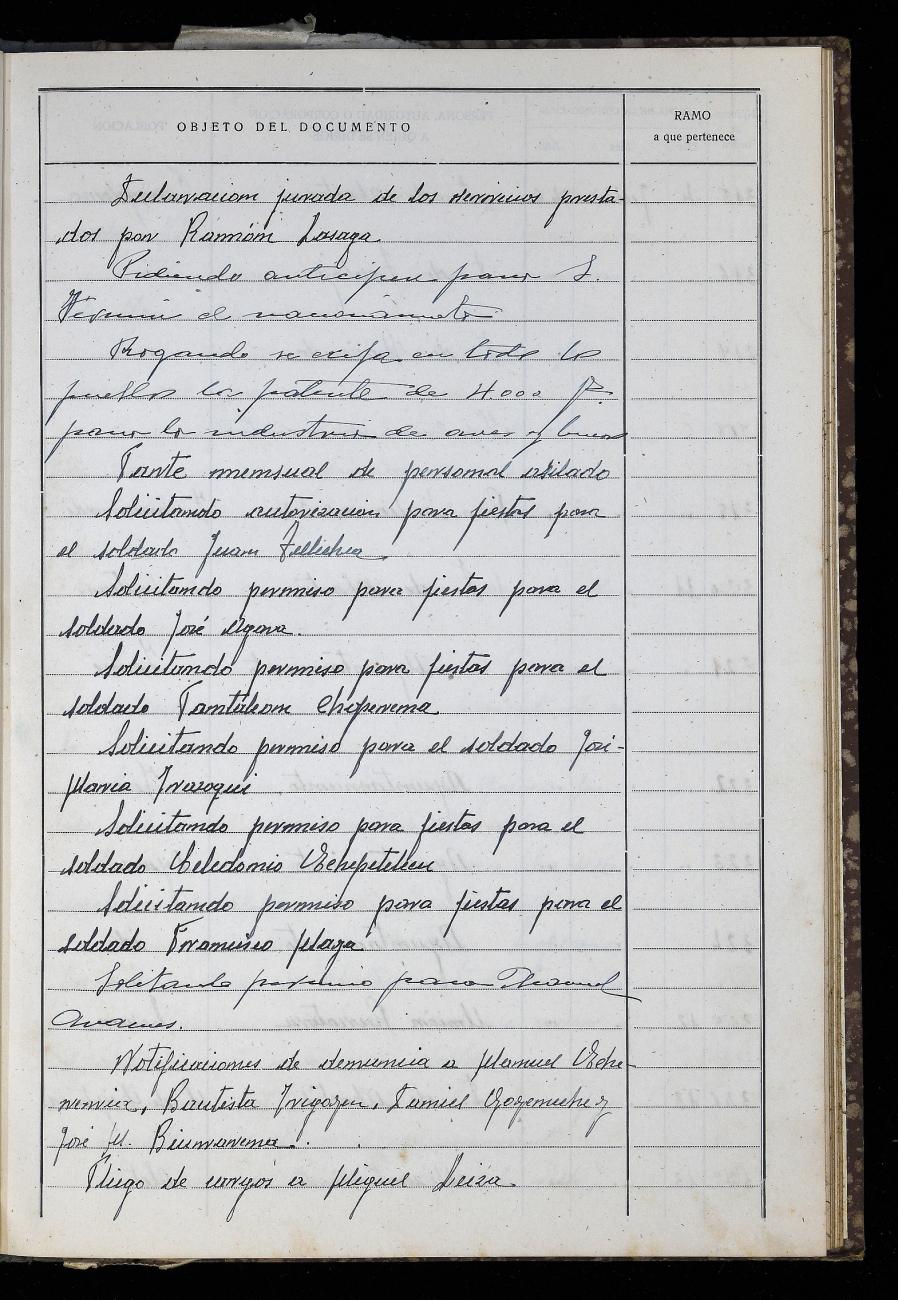 OBJETO DEL DOCUMENTO
RAMO
a que pertenece
Declaracion jurada de los servicios presta-
dos por Ramón Lasaga
Pidiendo anticipen para S.
Férmin el racionamiento
Rogando se exija en todo lo
pueblos la patente de 4.000 Pts
para la industria de aves y huevos
Parte mensual de personal asilado
Solicitando autorizacion para fiestas para
el soldado Juan Tellechea
Solicitando permiso para fiestas para el
soldado José
Solicitando permiso para fiestas para el
soldado Pantaleon
Solicitando permiso para el soldado José-
Maria Irazoqui
Solicitando permiso para fiestas para el
soldado Celedonio Echepeteleu
Solicitando permiso para fiestas para el
soldado Francisco Maya
Solitando permiso para Manuel
Notificaciones de denuncia a Manuel Eche
Bautista Irigoyen, Daniel Goyeneche y
José M.
Pliego de cargos a Miguel Leiza